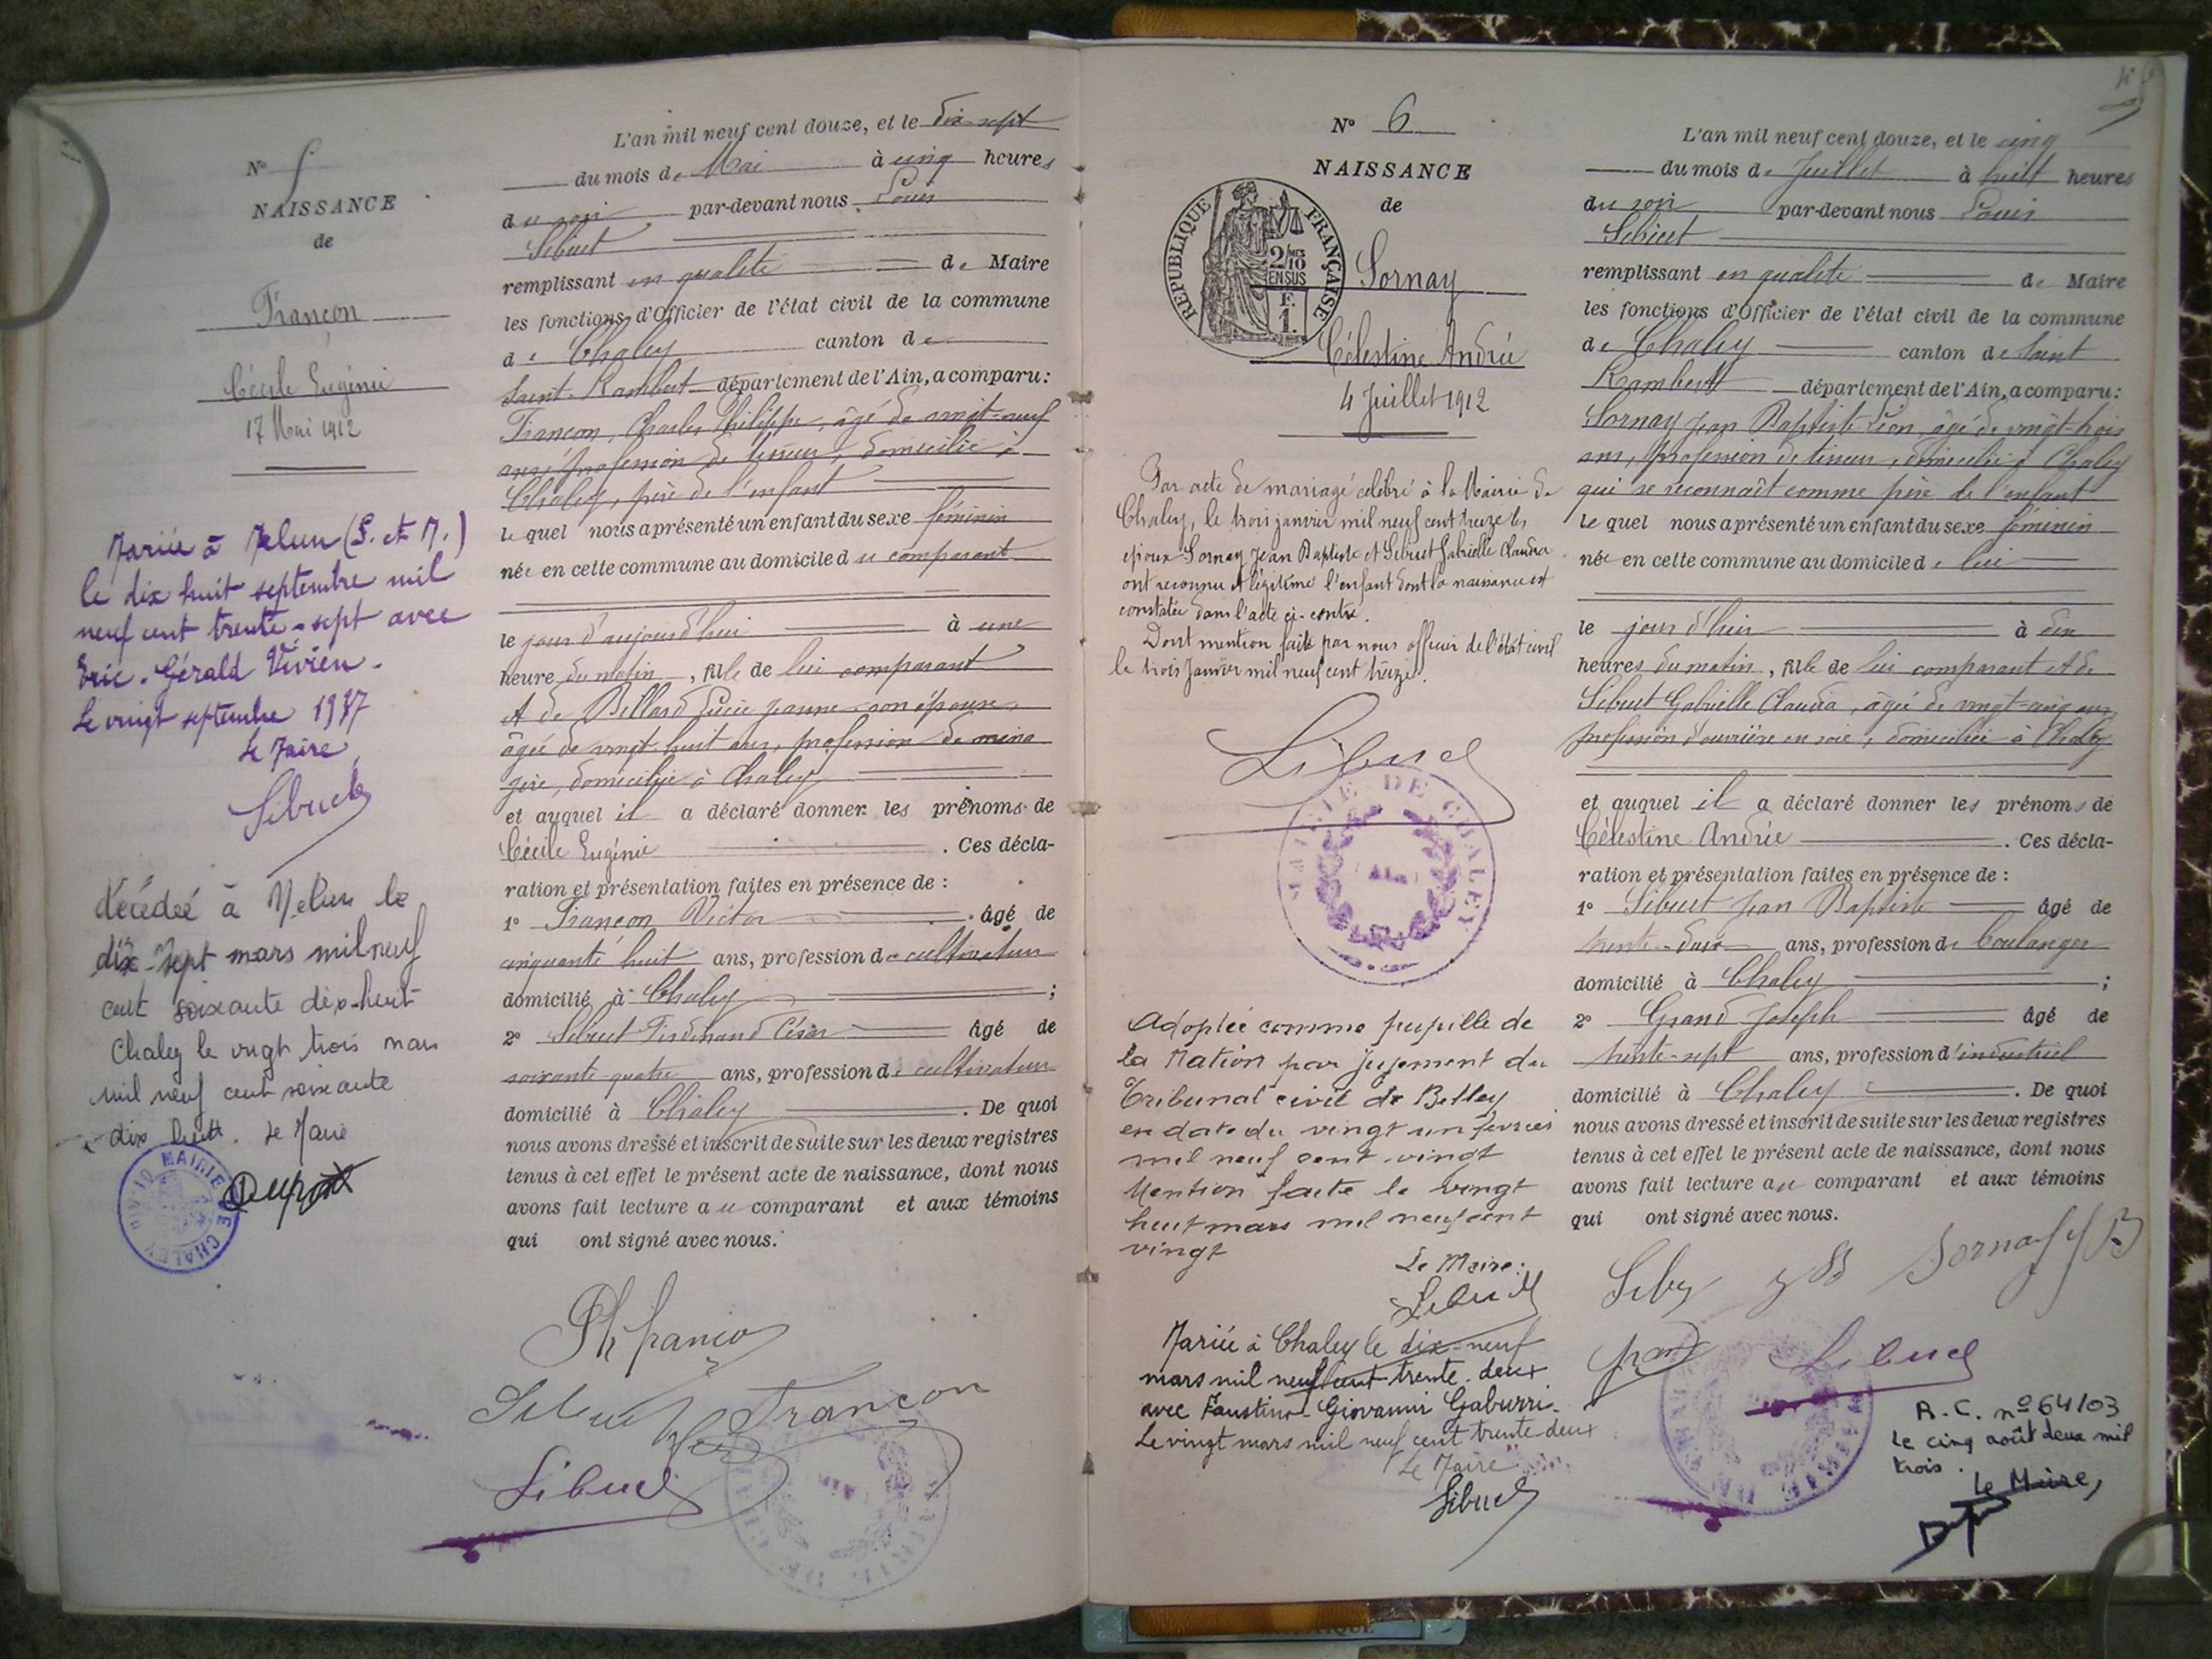 N° 5
NAISSANCE
de
Françon
Cécile Eugénie
17 Mai 1912
Mariée à Melun (S. et M.)
le dix huit septembre mil
neuf cent trente-sept avec
Eric-Gérald Vivien.
Le vingt septembre 1937
Le Maire,
Sibuet
décédée à Melun le
dix-sept mars mil neuf
cent soixante dix-huit
Chaley le vingt trois mars
mil neuf cent soixante
dix huit. Le Maire
MAIRIE DE CHALEY
L'an mil neuf cent douze, et le dix-sept
du mois de Mai à cinq heures
du soir par-devant nous Louis
Sibuet
remplissant en qualité de Maire
les fonctions d'Officier de l'état civil de la commune
de Chaley canton de
Saint-Rambert département de l'Ain, a comparu :
Françon, Charles Philippe, âgé de vingt-neuf
ans, profession de tisseur, domicilié à
Chaley, père de l'enfant
lequel nous a présenté un enfant du sexe féminin
née en cette commune au domicile du comparant
le jour d'aujourd'hui à une
heure du matin, fille de lui comparant
et de Billard Lucie Jeanne son épouse
âgée de vingt huit ans, profession de ména
gère, domiciliée à Chaley
et auquel il a déclaré donner les prénoms de
Cécile Eugénie . Ces décla-
ration et présentation faites en présence de :
1° Françon Victor âgé de
cinquante huit ans, profession de cultivateur
domicilié à Chaley ;
2° Sibuet Ferdinand César âgé de
soixante quatre ans, profession de cultivateur
domicilié à Chaley . De quoi
nous avons dressé et inscrit de suite sur les deux registres
tenus à cet effet le présent acte de naissance, dont nous
avons fait lecture au comparant et aux témoins
qui ont signé avec nous.
Ph françon
Sibuet Françon
Sibuet
N° 6
NAISSANCE
de
REPUBLIQUE FRANÇAISE
2/10 EN SUS
F. 1.
Sornay
Célestine Andrée
4 Juillet 1912
Par acte de mariage célébré à la Mairie de
Chaley, le trois janvier mil neuf cent treize les
époux Sornay Jean Baptiste et Sibuet Gabrielle Claudia
ont reconnu et légitimé l'enfant dont la naissance est
constatée dans l'acte ci-contre.
Dont mention faite par nous officier de l'état civil
le trois Janvier mil neuf cent treize.
Sibuet
MAIRIE DE CHALEY
(Ain)
Adoptée comme pupille de
la Nation par jugement du
Tribunal civil de Belley
en date du vingt un février
mil neuf cent vingt
Mention faite le vingt
huit mars mil neuf cent
vingt
Le Maire :
Sibuet
Mariée à Chaley le dix-neuf
mars mil neuf cent trente-deux
avec Faustino-Giovanni Gaburri.
Le vingt mars mil neuf cent trente deux
Le Maire
Sibuet
L'an mil neuf cent douze, et le cinq
du mois de Juillet à huit heures
du soir par-devant nous Louis
Sibuet
remplissant en qualité de Maire
les fonctions d'Officier de l'état civil de la commune
de Chaley canton de Saint
Rambert département de l'Ain, a comparu :
Sornay Jean Baptiste Léon, âgé de vingt-trois
ans, profession de tisseur, domicilié à Chaley
qui se reconnaît comme père de l'enfant
lequel nous a présenté un enfant du sexe féminin
née en cette commune au domicile de lui
le jour d'hier à dix
heures du matin, fille de lui comparant et de
Sibuet Gabrielle Claudia, âgée de vingt-cinq ans
profession d'ouvrière en soie, domiciliée à Chaley
et auquel il a déclaré donner les prénoms de
Célestine Andrée . Ces décla-
ration et présentation faites en présence de :
1° Sibuet Jean Baptiste âgé de
trente-deux ans, profession de boulanger
domicilié à Chaley ;
2° Grand Joseph âgé de
trente-sept ans, profession d'industriel
domicilié à Chaley . De quoi
nous avons dressé et inscrit de suite sur les deux registres
tenus à cet effet le présent acte de naissance, dont nous
avons fait lecture au comparant et aux témoins
qui ont signé avec nous.
Sornay JB
Grand Sibuet
R.C. n° 64/03
le cinq août deux mil
trois.
Le Maire,